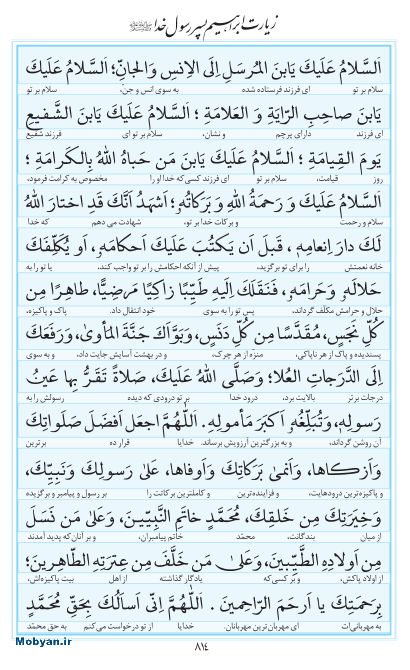 زیارت ابراهیم پسر رسول خدا ﷺ
اَلسَّلامُ عَلَیكَ یَابنَ المُرسَلِ اِلَی الاِنسِ وَالجانِّ؛ اَلسَّلامُ عَلَیكَ
سلام بر تو ای فرزند فرستاده شده به سوی انس و جن، سلام بر تو
یَابنَ صاحِبِ الرّایَةِ وَ العَلامَةِ ؛ اَلسَّلامُ عَلَیكَ یَابنَ الشَّفیعِ
ای فرزند دارای پرچم و نشان، سلام بر تو ای فرزند شفیع
یَومَ القِیامَةِ ؛ اَلسَّلامُ عَلَیكَ یَابنَ مَن حَباهُ اللهُ بِالکَرامَةِ ؛
روز قیامت، سلام بر تو ای فرزند کسی که خدا او را مخصوص به کرامت فرمود،
اَلسَّلامُ عَلَیكَ وَ رَحمَةُ اللهِ وَ بَرَکاتُهُ؛ اَشهَدُ اَنَّكَ قَدِ اختارَ اللهُ
سلام و رحمت و برکات خدا بر تو، شهادت می دهم که خدا
لَكَ دارَ اِنعامِهِ ، قَبلَ اَن یَکتُبَ عَلَیكَ اَحکامَهُ، اَو یُکَلِّفَكَ
خانه نعمتش را برای تو برگزید، پیش از آنکه احکامش را بر تو واجب کند، یا تو را به
حَلالَهُ وَ حَرامَهُ، فَنَقَلَكَ اِلَیهِ طَیِّبًا زاکِیًا مَرضِیًّا، طاهِرًا مِن
حلال و حرامش مکلف گرداند، پس تو را به سوی خود انتقال داد. پاک و پاکیزه،
کُلِّ نَجَسٍ، مُقَدَّسًا مِن کُلِّ دَنَسٍ، وَبَوَّاَكَ جَنَّةَ المَأویٰ، وَرَفَعَكَ
پسندیده و پاک از هر ناپاکی، منزه از هر چرک، و در بهشت آسایش جایت داد، و به سوی
اِلَی الدَّرَجاتِ العُلا؛ وَصَلَّی اللهُ عَلَیكَ، صَلاةً تَقَرُّ بِها عَینُ
درجات برتر بالایت برد، درود خدا بر تو درودی که دیده رسولش را به
رَسولِهِ، وَتُبَلِّغُهُ اَکبَرَ مَأمولِهِ. اَللّهُمَّ اجعَل اَفضَلَ صَلَواتِكَ
آن روشن گرداند، و به بزرگترین آرزویش برساند. خدایا قرار ده برترین
وَاَزکاها، وَاَنمیٰ بَرَکاتِكَ وَاَوفاها، عَلیٰ رَسولِكَ وَنَبِیِّكَ،
و پاکیزه‌ترین درودهایت، و فزاینده‌ترین و کاملترین برکاتت را بر رسول و پیامبر و برگزیده
وَخِیَرَتِكَ مِن خَلقِكَ، مُحَمَّدٍ خاتَمِ النَّبِیّینَ، وَعَلیٰ مَن نَسَلَ
از میان بندگانت، محمّد خاتم پیامبران، و بر آنان که پدید آمدند
مِن اَولادِهِ الطَّیِّبینَ، وَعَلیٰ مَن خَلَّفَ مِن عِترَتِهِ الطّاهِرینَ؛
از اولاد پاکش، و بر کسی که یادگار گذاشته از اهل بیت پاکیزه‌اش،
بِرَحمَتِكَ یا اَرحَمَ الرّاحِمینَ. اَللّهُمَّ اِنّی اَسأَلُكَ بِحَقِّ مُحَمَّدٍ
به مهربانی‌ات ای مهربان‌ترین مهربانان. خدایا از تو درخواست می‌کنم به حق محمّد
٨١٤
Mobyan.ir